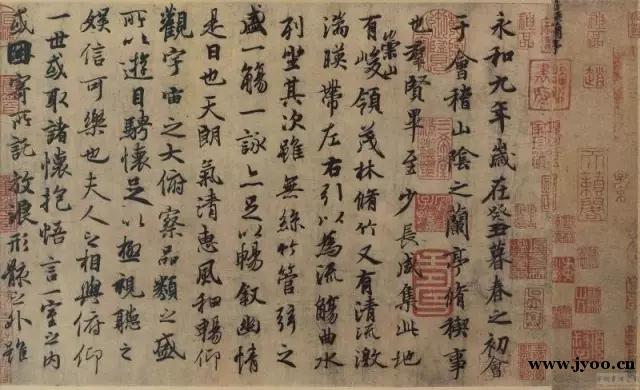 永和九年歲在癸丑暮春之初會
于會稽山陰之蘭亭脩稧事
也羣賢畢至少長咸集此地
有崇山峻領茂林脩竹又有清流激
湍暎帶左右引以為流觴曲水
列坐其次雖無絲竹管弦之
盛一觴一詠亦足以暢敘幽情
是日也天朗氣清惠風和暢仰
觀宇宙之大俯察品類之盛
所以遊目騁懷足以極視聽之
娛信可樂也夫人之相與俯仰
一世或取諸懷抱悟言一室之內
或因寄所託放浪形骸之外雖
天籟閣
www.jyoo.cn